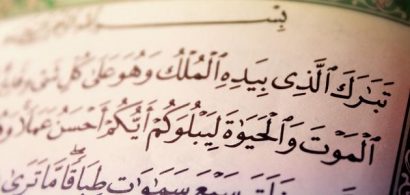 بِسْـــــــ
تَبَٰرَكَ ٱلَّذِى بِيَدِهِ ٱلْمُلْكُ وَهُوَ عَلَىٰ كُلِّ شَىْءٍ
ٱلْمَوْتَ وَٱلْحَيَوٰةَ لِيَبْلُوَكُمْ أَيُّكُمْ أَحْسَنُ عَمَلًا
سَبْعَ سَمَٰوَٰتٍ طِبَاقًا مَّا تَرَىٰ